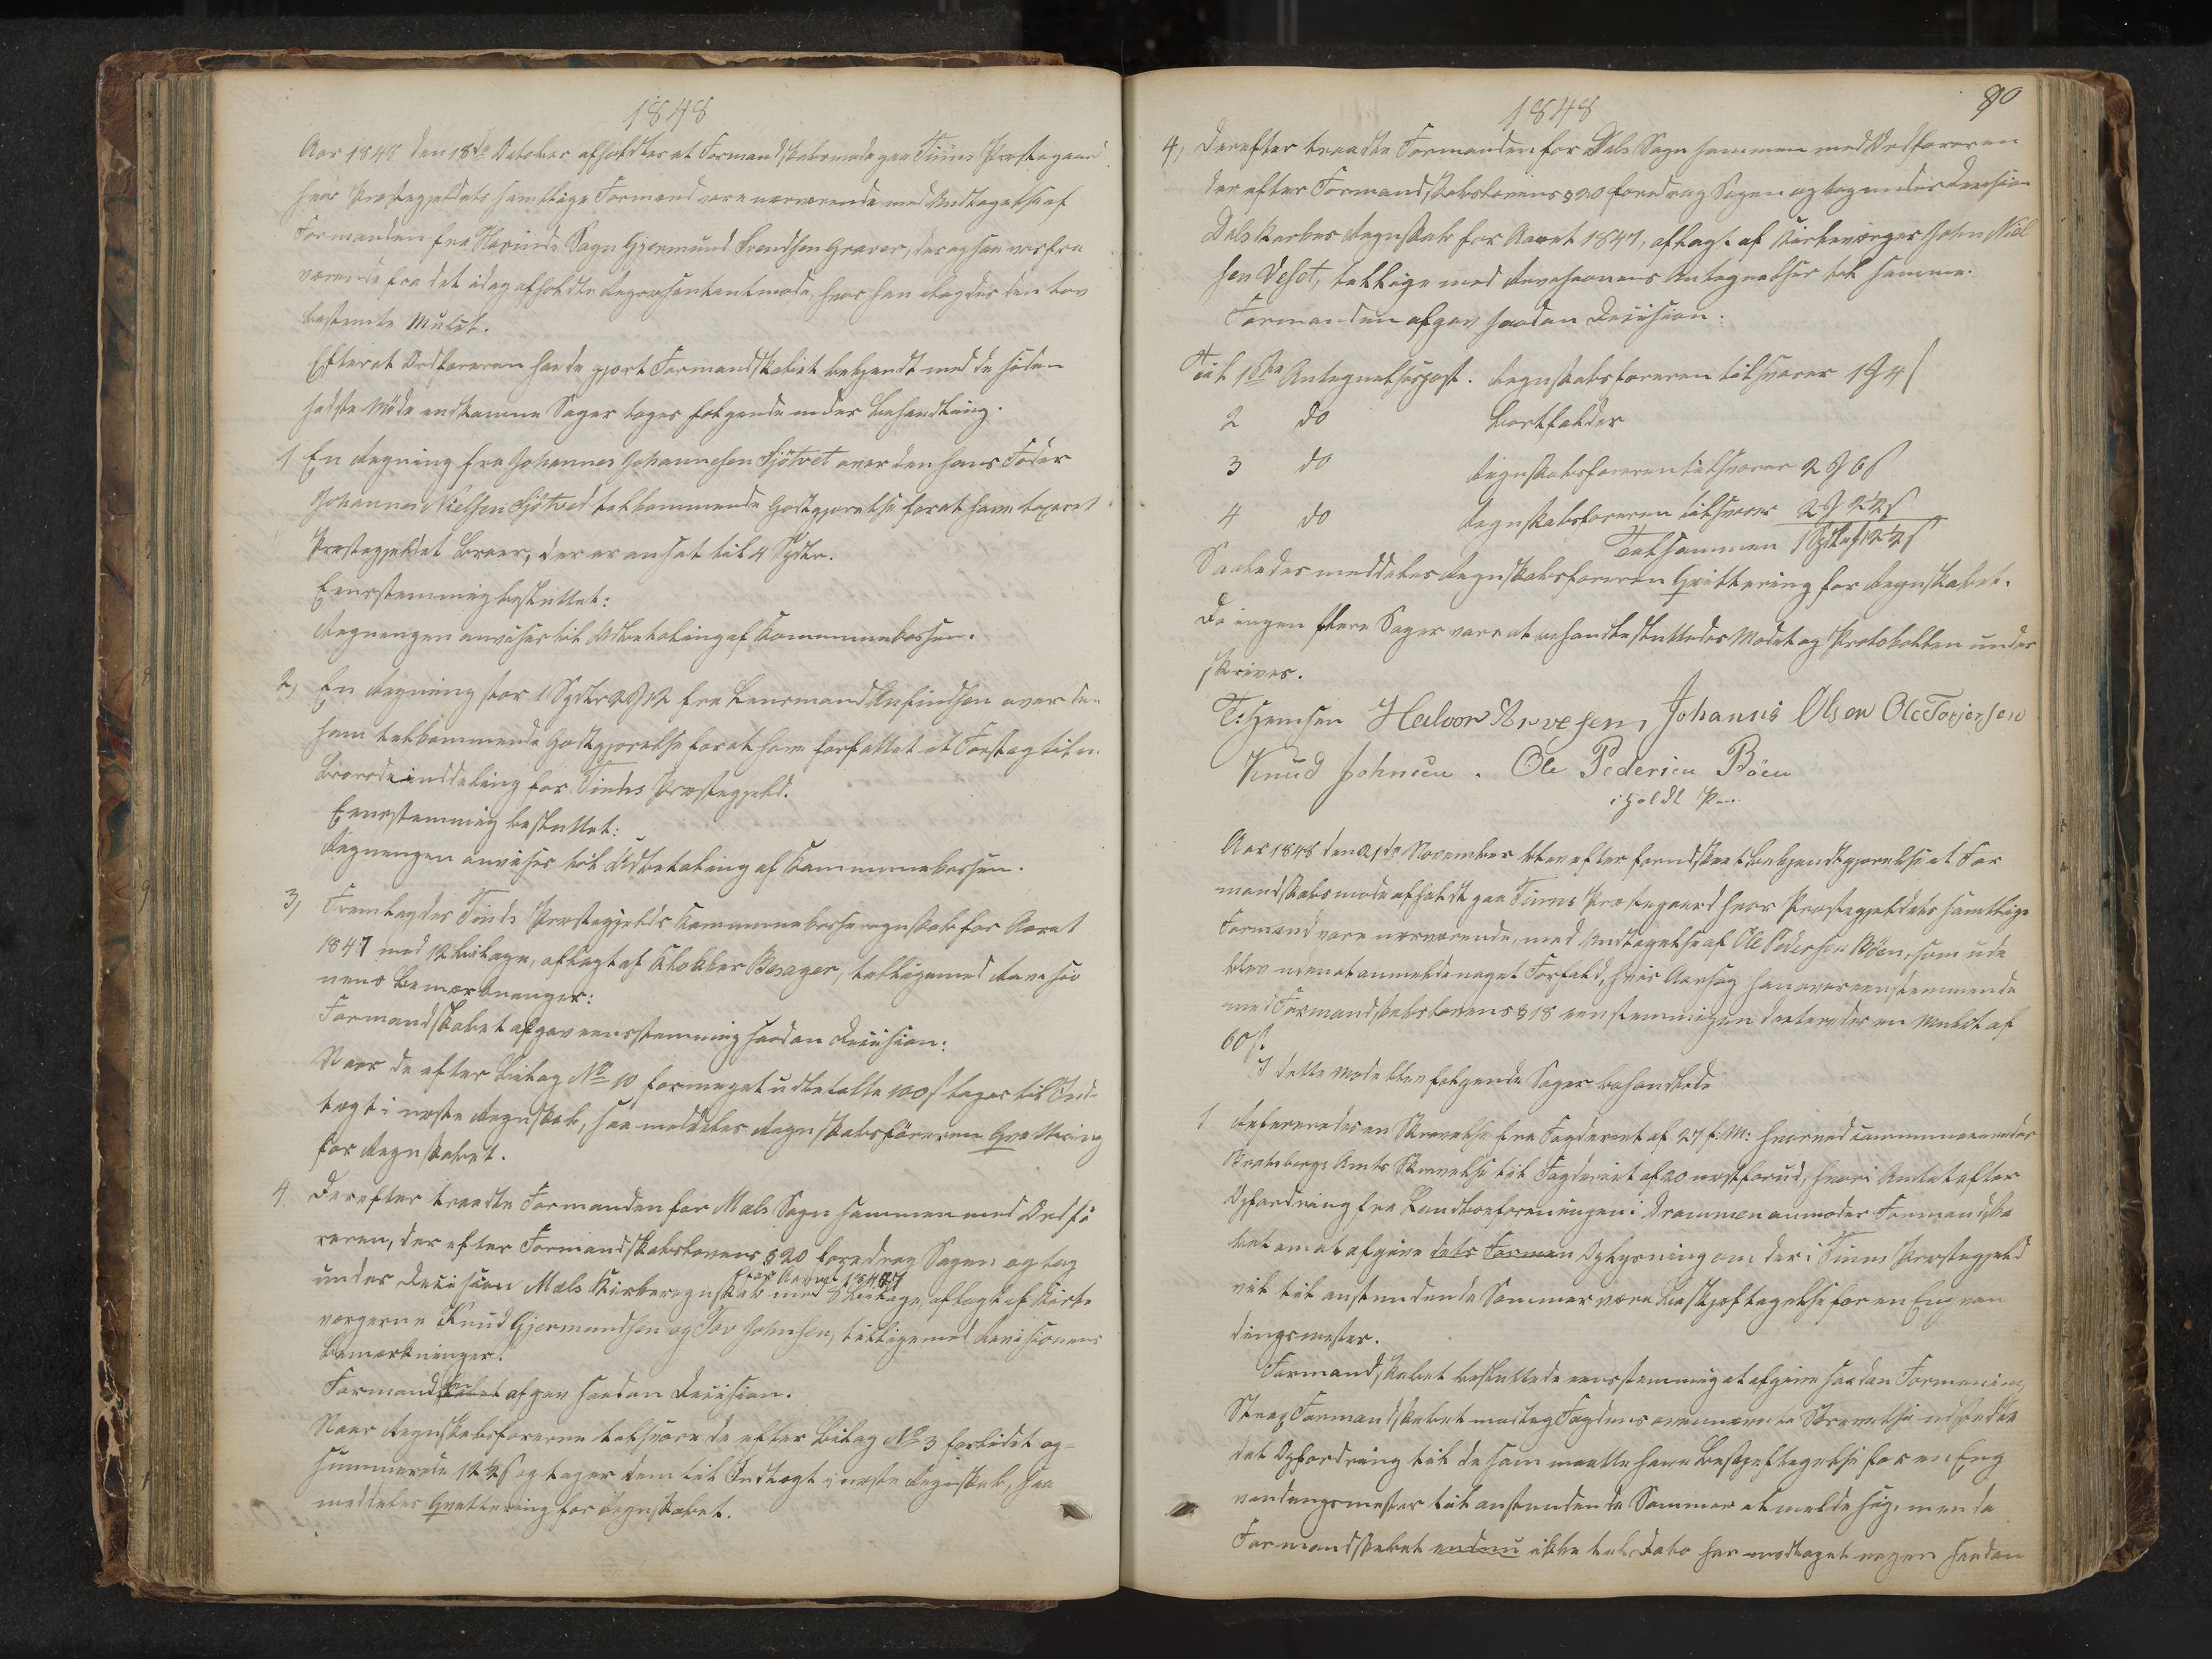 1848
Aar 1848 den 18de October afholdtes et Formandskabsmøde paa Tinns Præstegaard
hvor Præstegjeldets samtlige Formænd vare nærværende med Undtagelse af
Formanden fra Hovinds Sogn Gjermund Svendsen Graver, der ogsaa var fra
værende fra det idag afholdte Repræsentantmøde, hvor han ilagdes den lov
bestemte Mulct.
Efterat Ordføreren havde gjort Formandskabet bekjendt med de siden
sidste Møde indkomne Sager toges følgende under Behandling.
1 En Regning fra Johannes Johannesen Sjøtvet over den hans Fader
Johannes Nielsen Sjøtved tilkommende Godtgjørelse forat have taxeret
Præstegjeldet Broer, der er ansat til 4 Spdlr.
Eenstemmig besluttet:
Regningen anvises til Udbetaling af Kommunekassen.
2) En Regning stor 1 Spdlr 2 12 fra Lensmand Anfindsen over den
ham tilkommende Godtgjørelse forat have forfattet et Forslag til en
inddeling for Tinds Præstegjeld.
Eenstemmig besluttet:
Regningen anvises til Udbetaling af Kommunekassen.
3) Fremlagdes Tinds Præstegjelds Kommunekasseregnskab for Aaret
1847 med 12 Bilage, aflagt af Klokker Besager, tilligemed Revisio
nens Bemærkninger:
Formandskabet afgav eenstemmig saadan Decision:
Naar de efter Bilag No 10 formeget udbetalte 100 s tages til Ind-
tægt i næste Regnskab, saa meddeles Regnskabsføreren Qvittering
for Regnskabet.
4. Derefter traadte Formanden for Mæls Sogn sammen med Ordfø
reren, der efter Formandskabslovens § 20 foredrog Sagen og tog
for Aaret 1847
under Decision Mæls Kirkeregnskab med 8 Bilage, aflagt af Kirke
værgerne Knud Gjermundsen og Tov Johnsen, tilligemed Revisionens
Bemærkninger.
Formandskabet afgav saadan Decision.
Naar Regnskabsførerne tilsvare de efter Bilag No 3 forlidet op-
summerede 12 1/2 s og tager dem til Indtægt i næste Regnskab, saa
meddeles Qvittering for Regnskabet.
1848
80
4, Derefter traadte Formanden for Dals Sogn sammen med Ordføreren
der efter Formandskabslovens § 20 foredrog Sagen og tog under Decision
Dals Kirkes Regnskab for Aaret 1847, aflagt af Kirkeværger John Niel
sen tillige med Revisionens Antegnelser til samme.
Formanden afgav saadan Decision:
Til 1ste Antegnelsespost. Regnskabsføreren tilsvarer
2 do Bortfalder
3 do Regnskabsføreren tilsvarer 2 6 s
4 do Regnskabsføreren tilsvarer 2 2 1/2 s
Tilsammen 1 Spdlr 12 1/2 s
Saaledes meddeles Regnskabsføreren Qvittering for Regnskabet.
Da ingen flere Sager vare at behandle sluttedes Mødet og Protokollen under
skrives.
Halvor Johannis Olsen Ole Torjersen
Knud Johnsen. Ole Pedersen Bøen
iholdt Pen
Aar 1848 den 21de November blev efter foregaaet Bekjendtgjørelse et For
mandskabsmøde afholdt paa Tinns Præstegaard hvor Præstegjeldets samtlige
Formænd vare nærværende, med Undtagelse af Ole Pedersen Bøen, som ude
blev uden at anmelde noget Forfald, hvis Aarsag han overeenstemmende
med Formandskabslovens § 18 eenstemmigen dicteredes en Mulct af
60 s.
I dette Møde blev følgende Sager behandlede
1 Refereredes en Skrivelse fra Fogderiet af 27 f: M: hvorved communiceredes
Bratsbergs Amts Skrivelse til Fogderiet af 20 næstforud, hvori Amtet efter
Opfordring fra Landboeforeningen i Drammen anmoder Formandska
bet om at afgive dets Formen Oplysning om der i Tinns Præstegjeld
vil til anstundende Sommer være Beskjæftigelse for en Engvan
dingsmester.
Formandskabet besluttede eenstemmig at afgive saadan Formening
Strax Formandskabet modtog Fogdens ovennævnte Skrivelse udstedte
det Opfordring til de som maatte have Beskjæftigelse for en Eng
vandingsmester til anstundende Sommer at melde sig, men da
Formandskabet endnu ikke til Dato har modtaget nogen saadan